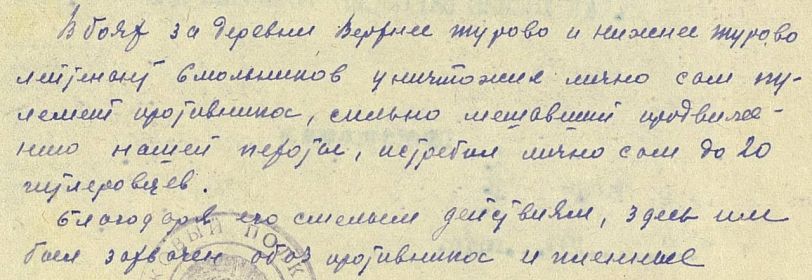 В боях за деревни Верхнее Журово и Нижнее Журово
лейтенант Смольников уничтожил лично сам пу-
лемет противника, сильно мешавший продвиже-
нию нашей пехоты, истребил лично сам до 20
гитлеровцев.
Благодаря его смелым действиям, здесь им
был захвачен обоз противника и пленные
КОВЫЙ ПОЛК